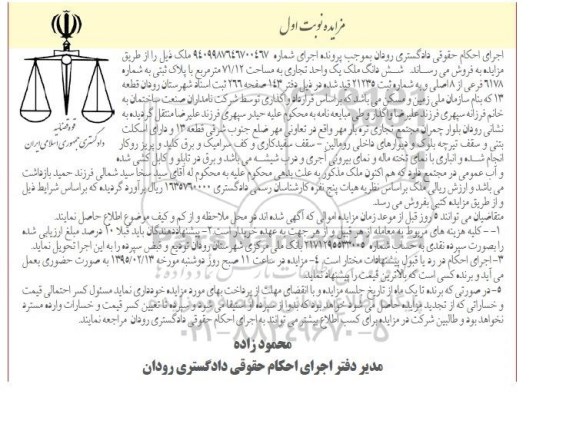 مزایده نوبت اول
قوه قضائیه
دادگستری جمهوری اسلامی ایران
اجرای احکام حقوقی دادگستری رودان بموجب پرونده اجرای شماره ۹۴۰۹۹۸۷۶۴۶۷۰۰۴۶۷ ملک ذیل را از طریق
مزایده به فروش می رساند شش دانگ ملک یک واحد تجاری به مساحت ۷۱/۱۲ مترمربع با پلاک ثبتی به شماره
۶۱۷۸ فرعی از ۸ اصلی و به شماره ثبت ۲۱۲۳۵ قید شده در ذیل دفتر ۱۴۳ صفحه ۲۶۶ ثبت اسناد شهرستان رودان قطعه
۱۳ که بنام سازمان ملی زمین و مسکن می باشد که براساس قرارداد واگذاری توسط شرکت نامداران صنعت ساختمان به
خانم فرزانه سپهری فرزند علیرضا واگذار و طی مبایعه نامه به محکوم علیه حیدر سپهری فرزند علیرضا منتقل گردیده به
نشانی رودان بلوار چمران مجتمع تجاری تره بار مهر واقع در تعاونی مهر ضلع جنوب شرقی قطعه ۱۳ و دارای اسکلت
بتنی و سقف تیرچه بلوک و دیوارهای داخلی رومالین - سقف سفیدکاری و کف سرامیک و برق کلید و پریز روکار
انجام شده و انباری با نمای تخته ماله و نمای بیرونی آجری و درب شیشه می باشد و برق در تابلو و کابل کشی شده
و آب عمومی در مجتمع دارد که هم اکنون ملک مذکور به علت بدهی محکوم علیه به محکوم له آقای سید سخا سید شمالی فرزند حمید بازداشت
می باشد و ارزش ریالی ملک براساس نظریه هیات پنج نفره کارشناسان رسمی دادگستری ۱۶۳۵۷۶۰۰۰۰ ریال برآورد گردیده که براساس شرایط ذیل
و از طریق مزایده کتبی بفروش می رسد.
متقاضیان می توانند ۵ روز قبل از موعد زمان مزایده اموالی که آگهی شده اند در محل ملاحظه و از کم و کیف موضوع اطلاع حاصل نمایند.
۱-- کلیه هزینه های مربوط به معامله از هر قبیل و از هر جهت به عهده خریدار است ۲- پیشنهاددهندگان باید قبلا ۱۰ درصد مبلغ ارزیابی شده
را بصورت سپرده نقدی به حساب شماره ۲۱۷۱۲۹۵۵۳۳۰۰۵ بانک ملی مرکزی شهرستان رودان تودیع و قبض سپرده را به این اجرا تحویل نماید.
۳-اجرای احکام در رد یا قبول پیشنهادات مختار است. ۴- مزایده در ساعت ۱۱ صبح روز دوشنبه مورخه ۱۳۹۵/۰۲/۱۳ به صورت حضوری بعمل
می آید و برنده کسی است که بالاترین قیمت را پیشنهاد نماید.
۵- در صورتی که برنده تا یک ماه از تاریخ جلسه مزایده و با انقضای مهلت از پرداخت بهای مورد مزایده خودداری نماید مسئول کسر احتمالی قیمت
و خساراتی که از تجدید مزایده حاصل می شود خواهد بود که بدوا از سپرده او استیفا می شود و سپرده تامین کسر قیمت و خسارات وارده مسترد
نخواهد بود و طالبین شرکت در مزایده برای کسب اطلاع بیشتر می توانند به اجرای احکام حقوقی دادگستری رودان مراجعه نمایند.
۰۲۱-۸۸۳۴۹۶۷۰-۵
محمود زاده
مدیر دفتر اجرای احکام حقوقی دادگستری رودان